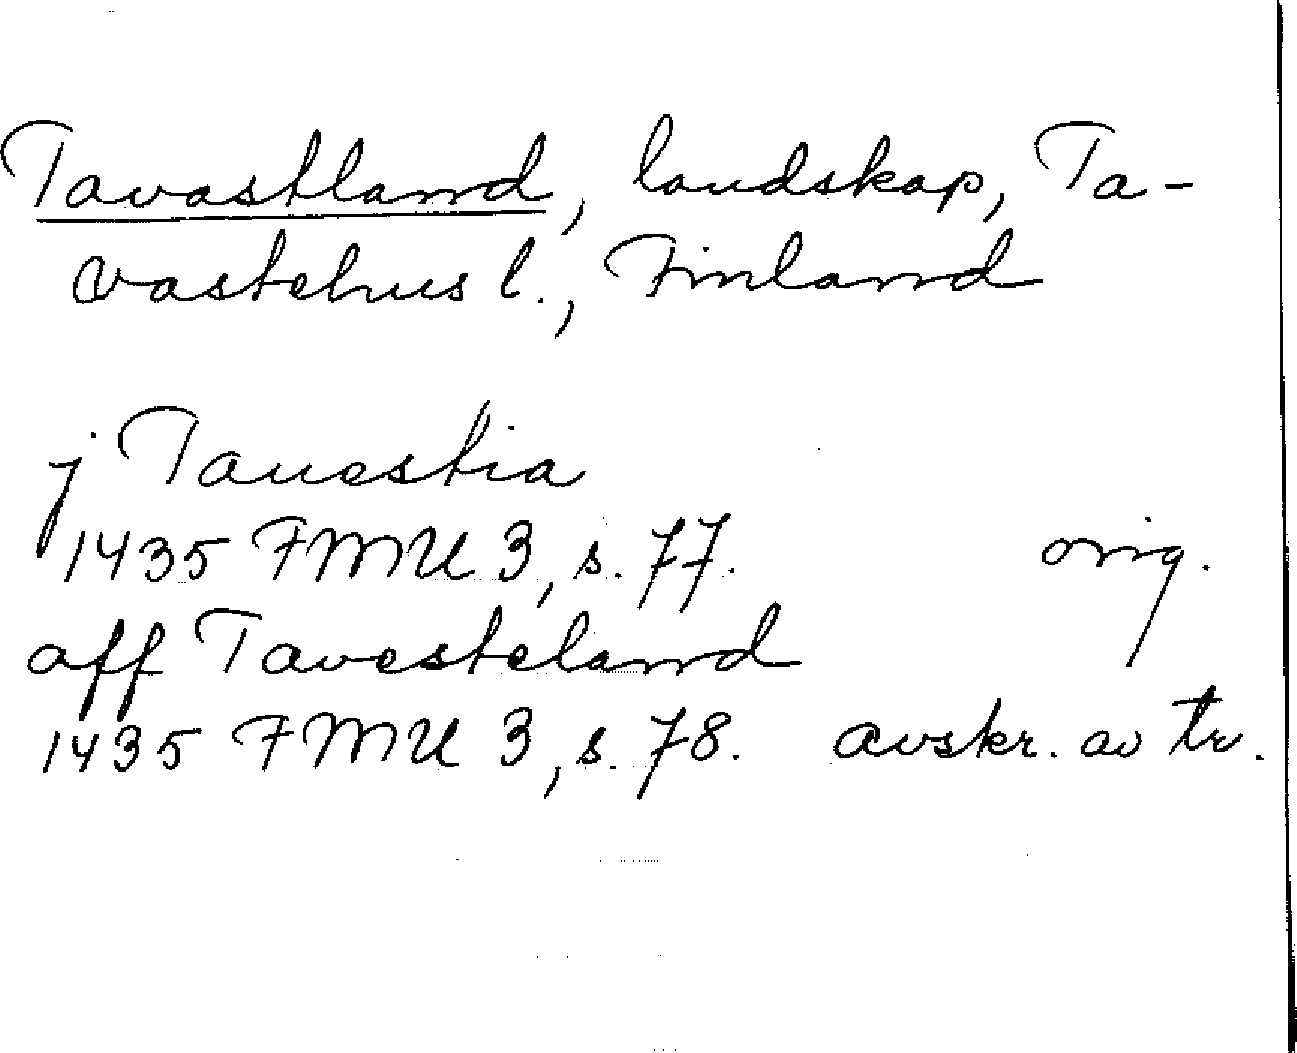 Tavastland, landskap, Ta-
vastehus l., Finland
j Tauestia
1435 FMU 3, s. 77. orig.
aff Tavesteland
1435 FMU 3, s. 78. avskr. av tr.